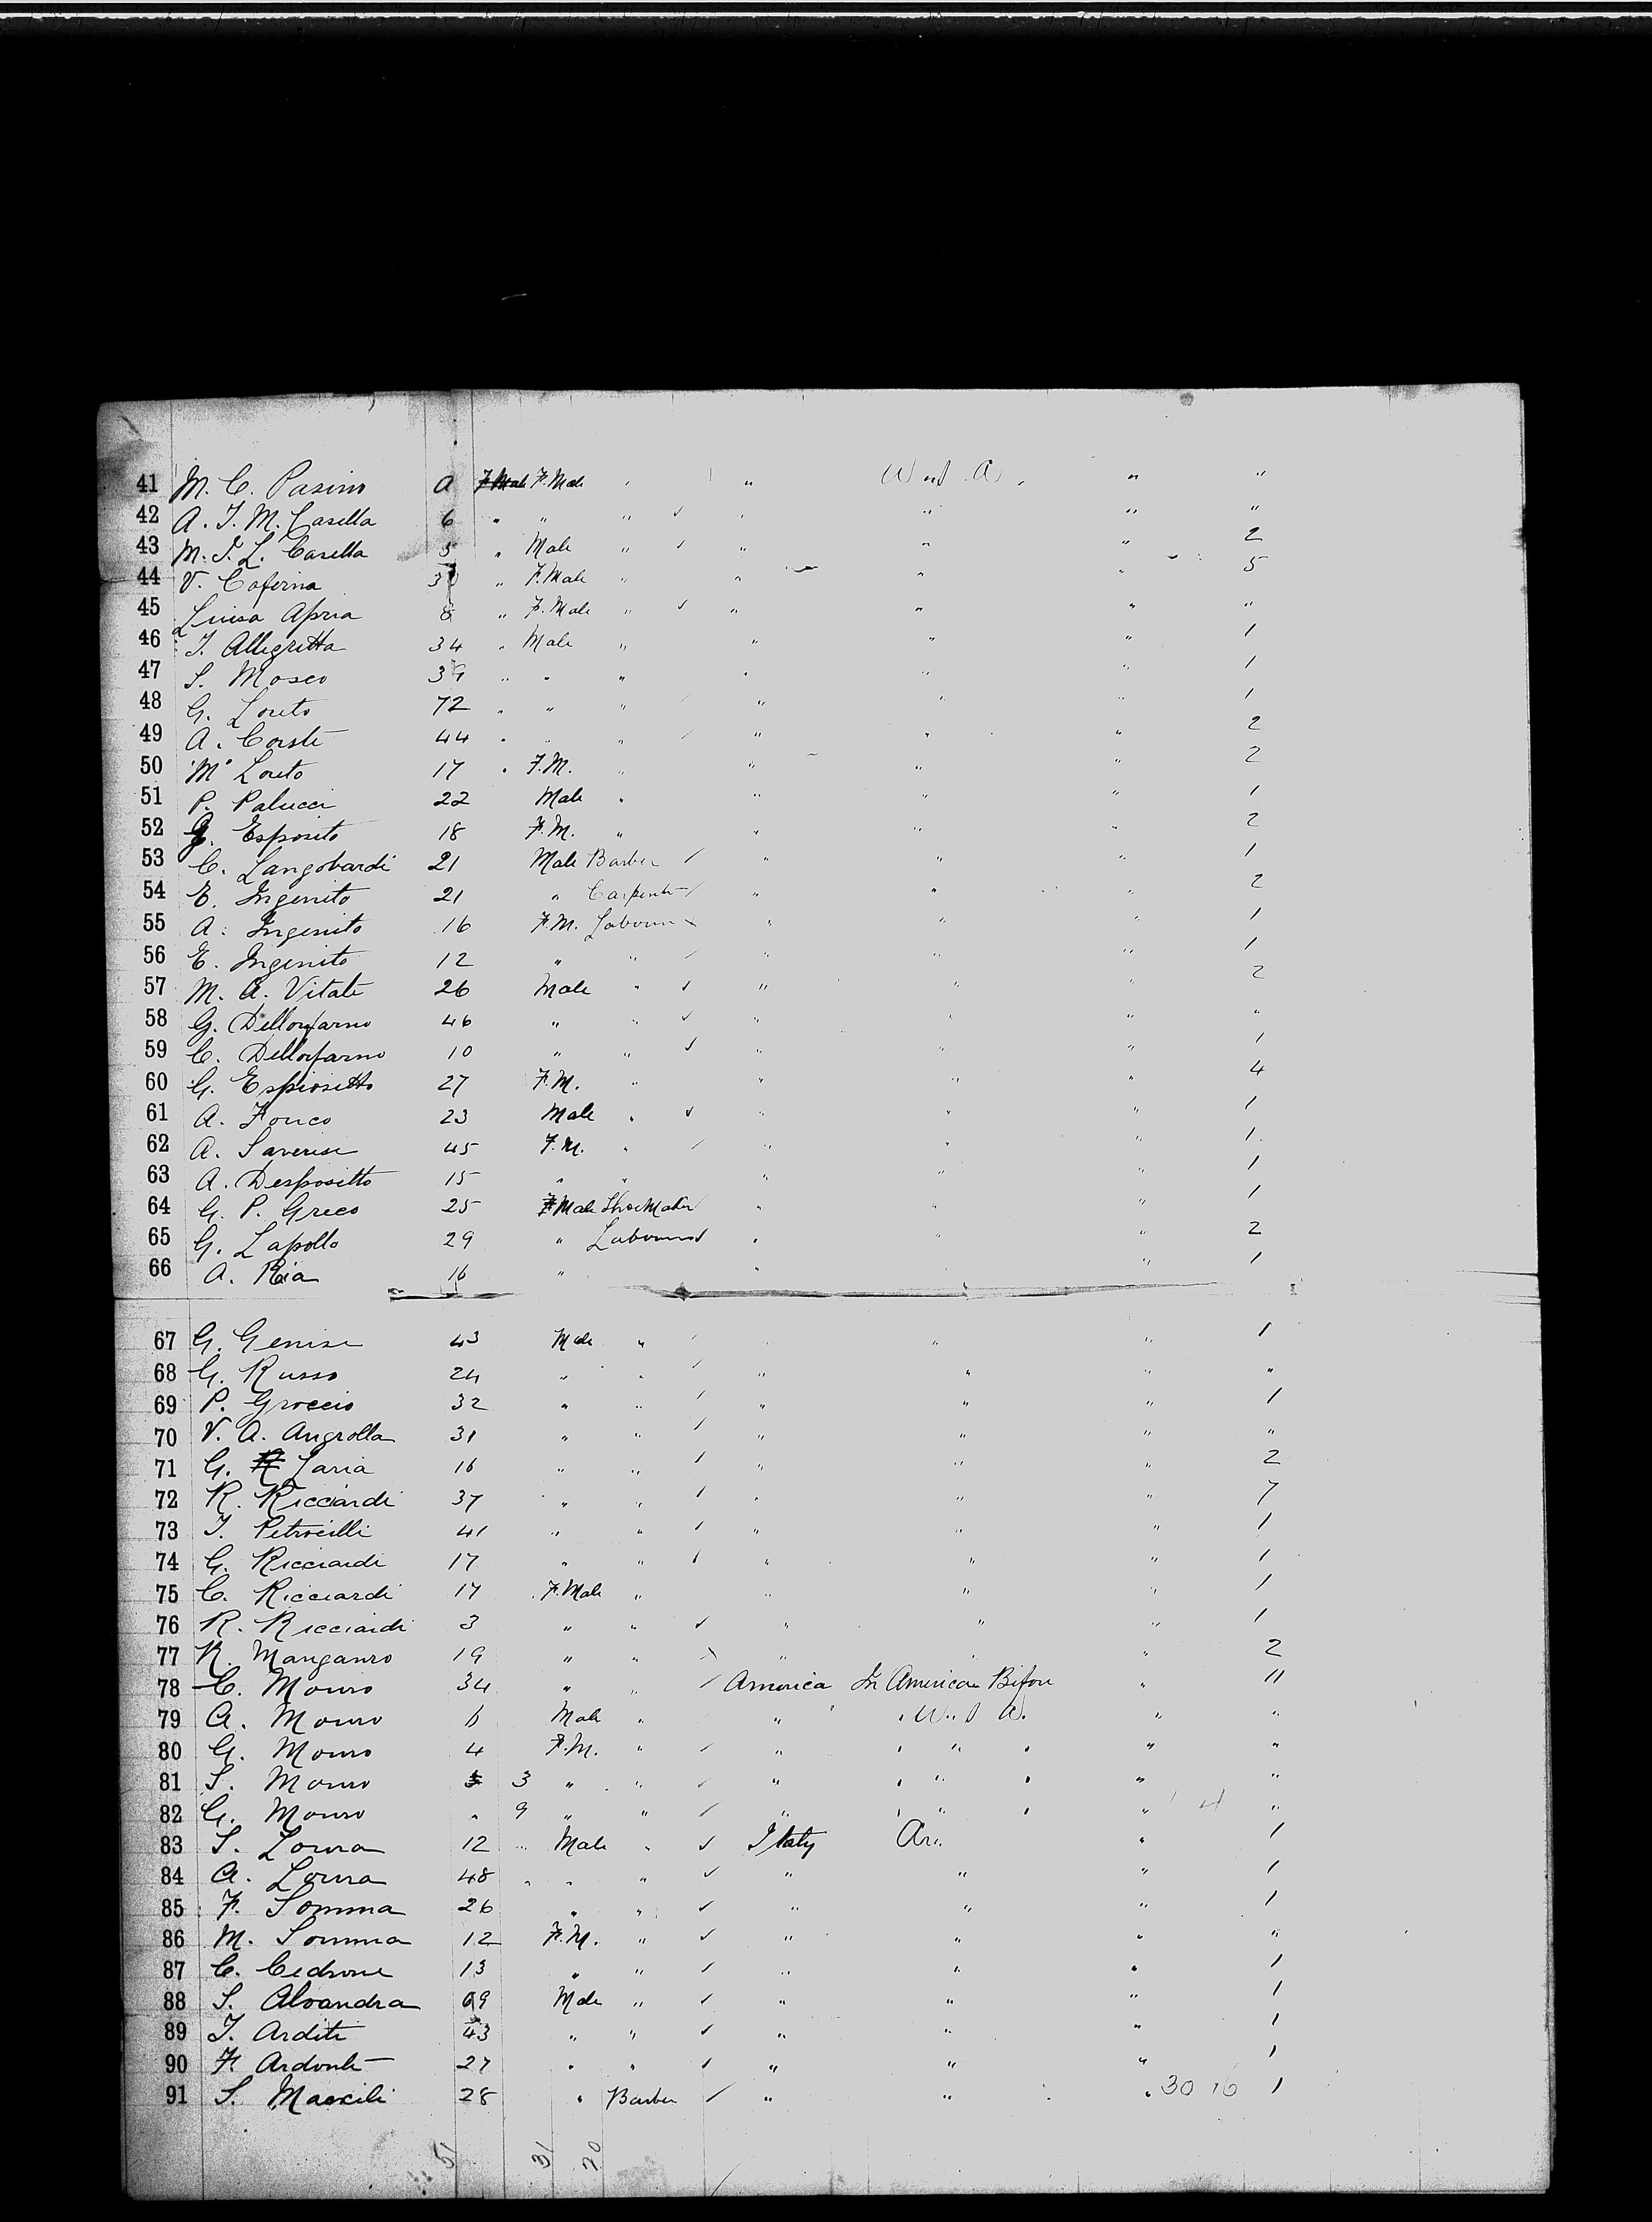 41 M. C. Pasino a F. Male " W and A " "
42 A. T. M. Casella 6 " " " ✓ " " " "
43 M. T. L. Casella 5 " Male " ✓ " " " 2
44 V. Caferina " F. Male " " " " 5
45 Luisa Apria 8 " F. Male " ✓ " " " "
46 J. Allegritta 34 " Male " " " " 1
47 S. Mosco 39 " " " " " " 1
48 G. Loreto 72 " " " / " " " 1
49 A. Corste 44 " " " / " " " 2
50 Mª Loreto 17 " F.M. " " " " 2
51 P. Palucci 22 Male " " " " 1
52 G. Esposito 18 F.M. " " " " 2
53 C. Langobardi 21 Male Barber / " " " 1
54 E. Ingenito 21 " Carpenter / " " " 2
55 A. Ingenito 16 F.M. Labourer " " " 1
56 E. Ingenito 12 " " / " " " 1
57 M. A. Vitale 26 Male " ✓ " " " 2
58 G. Dellorfarno 46 " " ✓ " " " "
59 C. Dellorfarno 10 " " ✓ " " " 1
60 G. Espiositto 27 F.M. " " " " 4
61 A. Fonco 23 Male " ✓ " " " 1
62 A. Saverise 45 F.M. " / " " " 1
63 A. Despositto 15 " " " " " 1
64 G. P. Greco 25 Male ShoeMaker / " " " 1
65 G. Lapollo 29 " Labourer ✓ " " " 2
66 A. Ria 16 " " " 1
67 G. Genise 43 Male " / " " " 1
68 G. Russo 24 " " / " " " "
69 P. Groccio 32 " " / " " " 1
70 V. A. Angrolla 31 " " / " " " "
71 G. Laria 16 " " / " " " 2
72 R. Ricciardi 37 " " / " " " 7
73 J. Petrocilli 41 " " / " " " 1
74 G. Ricciardi 17 " " ✓ " " " 1
75 C. Ricciardi 17 F. Male " " " " 1
76 R. Ricciardi 3 " " ✓ " " " 1
77 R. Manganro 19 " " " " " 2
78 C. Mouro 34 " " / America In American Bifore " 11
79 A. Mouro 6 Male " " " W and A. " "
80 G. Mouro 4 F.M. " / " " " "
81 S. Mouro 3 " " / " " " "
82 G. Mouro " 9 " " / " " " 4 "
83 S. Loura 12 " Male " ✓ Italy " 1
84 A. Loura 48 " " " ✓ " " " 1
85 F. Somma 26 " " ✓ " " " 1
86 M. Somma 12 F.M. " ✓ " " " "
87 C. Cedrone 13 " " / " " " 1
88 S. Aloandra 69 Male " / " " " 1
89 J. Ardite 43 " " ✓ " " " 1
90 F. Ardonte 27 " " / " " " 1
91 S. Mascili 28 " Barber / " " " 30 16 1
51 31 20